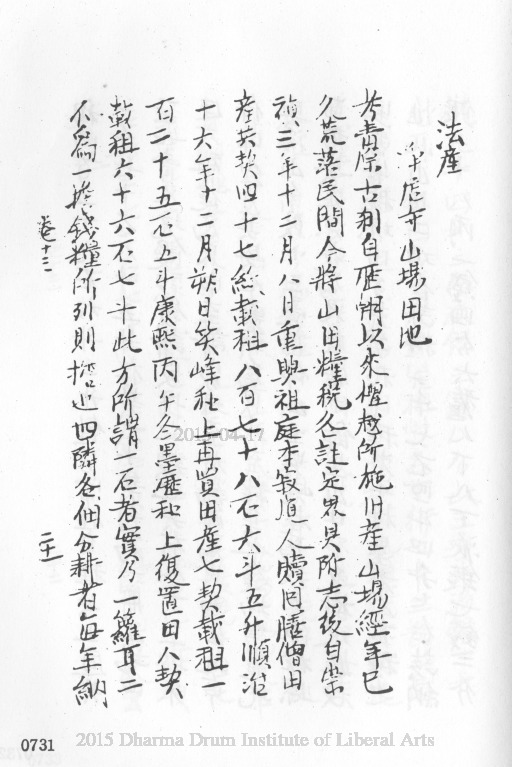 法產
淨居寺山場田地
考青原古刹自歷朝以來檀越所施旧產山場經年已
久荒蕩民間今將山田糧稅各註定界具附志後自崇
禎三年十二月八日重興祖庭本寂道人贖囘賸僧田
產共契四十七紙載租八百七十八石六斗五升順治
十六年十二月朔日笑峰和上再買田產七契載租一
百二十五石五斗康熙丙午冬墨歷和上復置田八契
載租六十六石七斗此方所謂一石者實乃一籮耳二
不為一擔錢糧所列則擔近四隣各佃分耕者每年納
卷十三
二十一
0731
2015 Dharma Drum Institute of Liberal Arts
2015-04-17